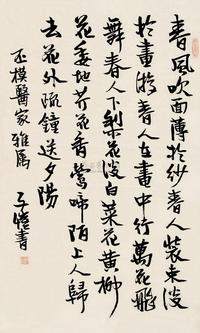 春風吹面薄於紗春人裝束淡
於畫游春人在畫中行萬花飛
舞春人下梨花淡白菜花黃柳
花委地芥花香鶯啼陌上人歸
去花外疏鐘送夕陽
丕樸醫家雅屬
子愷書